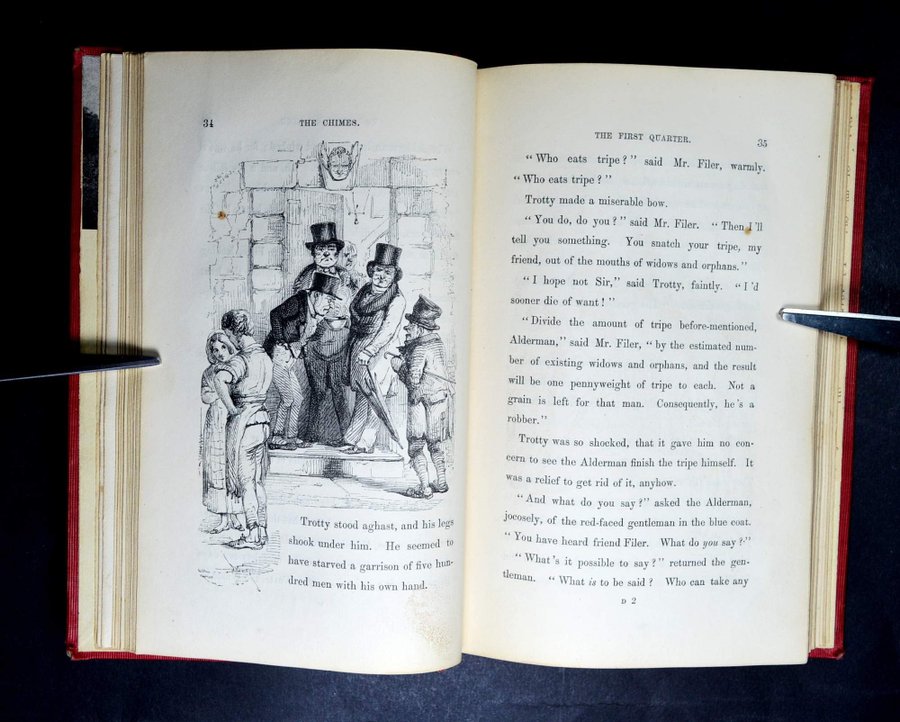 34
THE CHIMES.
Trotty stood aghast, and his legs
shook under him. He seemed to
have starved a garrison of five hun-
dred men with his own hand.
THE FIRST QUARTER.
35
“Who eats tripe?” said Mr. Filer, warmly.
“Who eats tripe?”
Trotty made a miserable bow.
“You do, do you?” said Mr. Filer. “Then I'll
tell you something. You snatch your tripe, my
friend, out of the mouths of widows and orphans.”
“I hope not Sir,” said Trotty, faintly. “I'd
sooner die of want!”
“Divide the amount of tripe before-mentioned,
Alderman,” said Mr. Filer, “by the estimated num-
ber of existing widows and orphans, and the result
will be one pennyweight of tripe to each. Not a
grain is left for that man. Consequently, he's a
robber.”
Trotty was so shocked, that it gave him no con-
cern to see the Alderman finish the tripe himself. It
was a relief to get rid of it, anyhow.
“And what do you say?” asked the Alderman,
jocosely, of the red-faced gentleman in the blue coat.
“You have heard friend Filer. What do you say?”
“What's it possible to say?” returned the gen-
tleman. “What is to be said? Who can take any
D 2